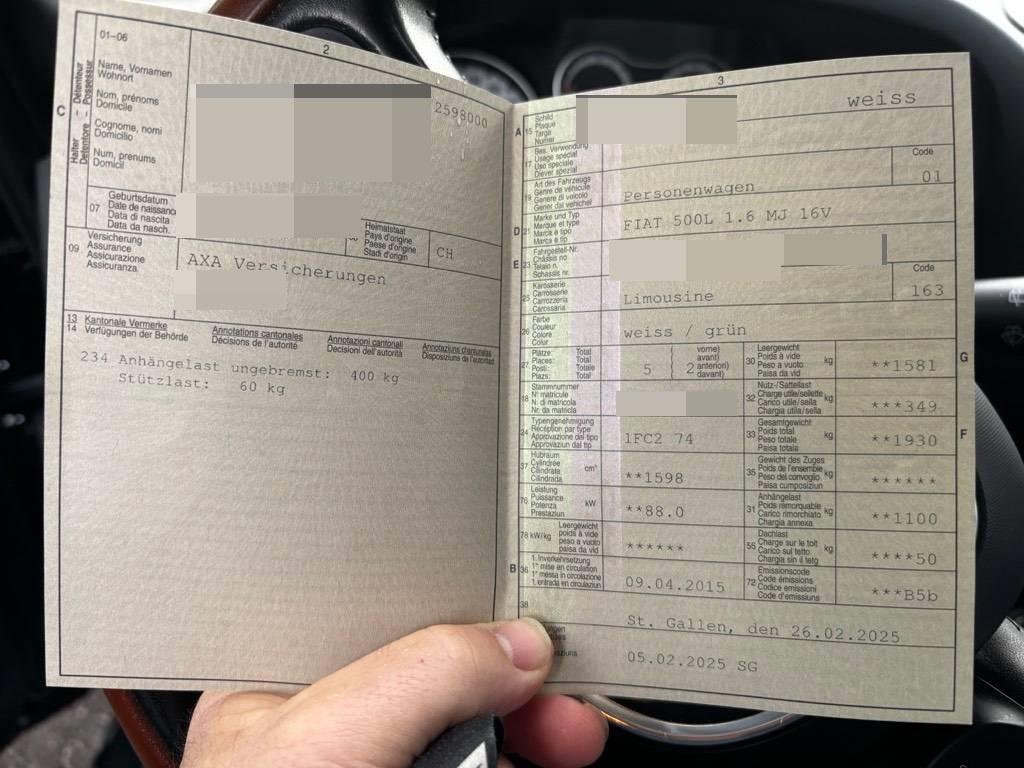 2
01-06
C
Halter - Détenteur
Detentore - Possessur
Name, Vornamen
Wohnort
Nom, prénoms
Domicile
Cognome, nomi
Domicilio
Num, prenums
Domicil
2598000
07
Geburtsdatum
Date de naissanc
Data di nascita
Data da nasch.
Heimatstaat
Pays d'origine
Paese d'origine
Stadi d'origin
CH
09
Versicherung
Assurance
Assicurazione
Assicuranza
AXA Versicherungen
13 Kantonale Vermerke
14 Verfügungen der Behörde
Annotations cantonales
Décisions de l'autorité
Annotazioni cantonali
Decisioni dell'autorità
Annotaziuns chantunalas
Disposiziuns da l'autoritad
234 Anhängelast ungebremst: 400 kg
Stützlast: 60 kg
3
A
15
Schild
Plaque
Targa
Numer
weiss
17
Bes. Verwendung
Usage spécial
Uso speciale
Diever spezial
Code
01
19
Art des Fahrzeugs
Genre de véhicule
Genere di veicolo
Gener dal vehichel
Personenwagen
D
21
Marke und Typ
Marque et type
Marca e tipo
Marca e tip
FIAT 500L 1.6 MJ 16V
E
23
Fahrgestell-Nr.
Châssis no
Telaio n.
Schassis nr.
25
Karosserie
Carrosserie
Carrozzeria
Carossaria
Limousine
Code
163
26
Farbe
Couleur
Colore
Colur
weiss / grün
27
Plätze: Total
Places: Total
Posti: Totale
Plazs: Totale
5
2
vorne)
avant)
anteriori)
davant)
30
Leergewicht
Poids à vide
Peso a vuoto
Paisa da vid
kg
**1581
G
18
Stammnummer
N° matricule
N. di matricola
Nr. da matricla
32
Nutz-/Sattellast
Charge utile/sellette
Carico utile/sella
Chargia utila/sella
kg
***349
24
Typengenehmigung
Réception par type
Approvazione del tipo
Approvaziun dal tip
1FC2 74
33
Gesamtgewicht
Poids total
Peso totale
Paisa totala
kg
**1930
F
37
Hubraum
Cylindrée
Cilindrata
Cilindrada
cm³
**1598
35
Gewicht des Zuges
Poids de l'ensemble
Peso del convoglio
Paisa cumposiziun
kg
******
76
Leistung
Puissance
Potenza
Prestaziun
kW
**88.0
31
Anhängelast
Poids remorquable
Carico rimorchiato
Chargia annexa
kg
**1100
78 kW/kg
Leergewicht
poids à vide
peso a vuoto
paisa da vid
******
55
Dachlast
Charge sur le toit
Carico sul tetto
Chargia sin il tetg
kg
****50
B
36
1. Inverkehrsetzung
1re mise en circulation
1a messa in circolazione
1. entrada en circulaziun
09.04.2015
72
Emissionscode
Code émissions
Codice emissioni
Code d'emissiuns
***B5b
38
St. Gallen, den 26.02.2025
05.02.2025 SG